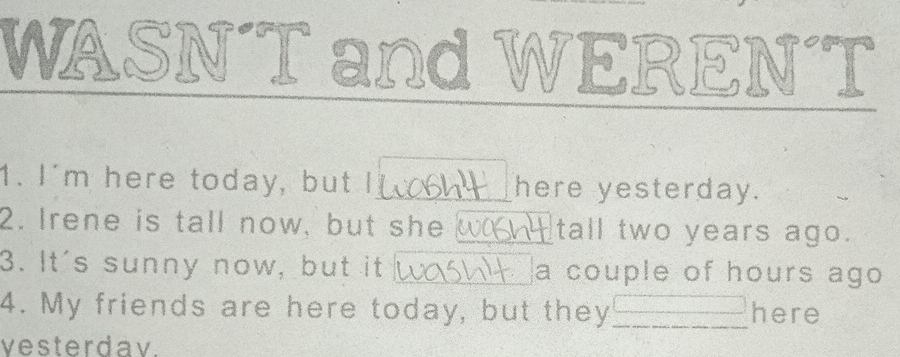 WASN'T and WEREN'T
1. I'm here today, but I wasn't here yesterday.
2. Irene is tall now, but she wasn't tall two years ago.
3. It's sunny now, but it wasn't a couple of hours ago
4. My friends are here today, but they ______ here
yesterday.